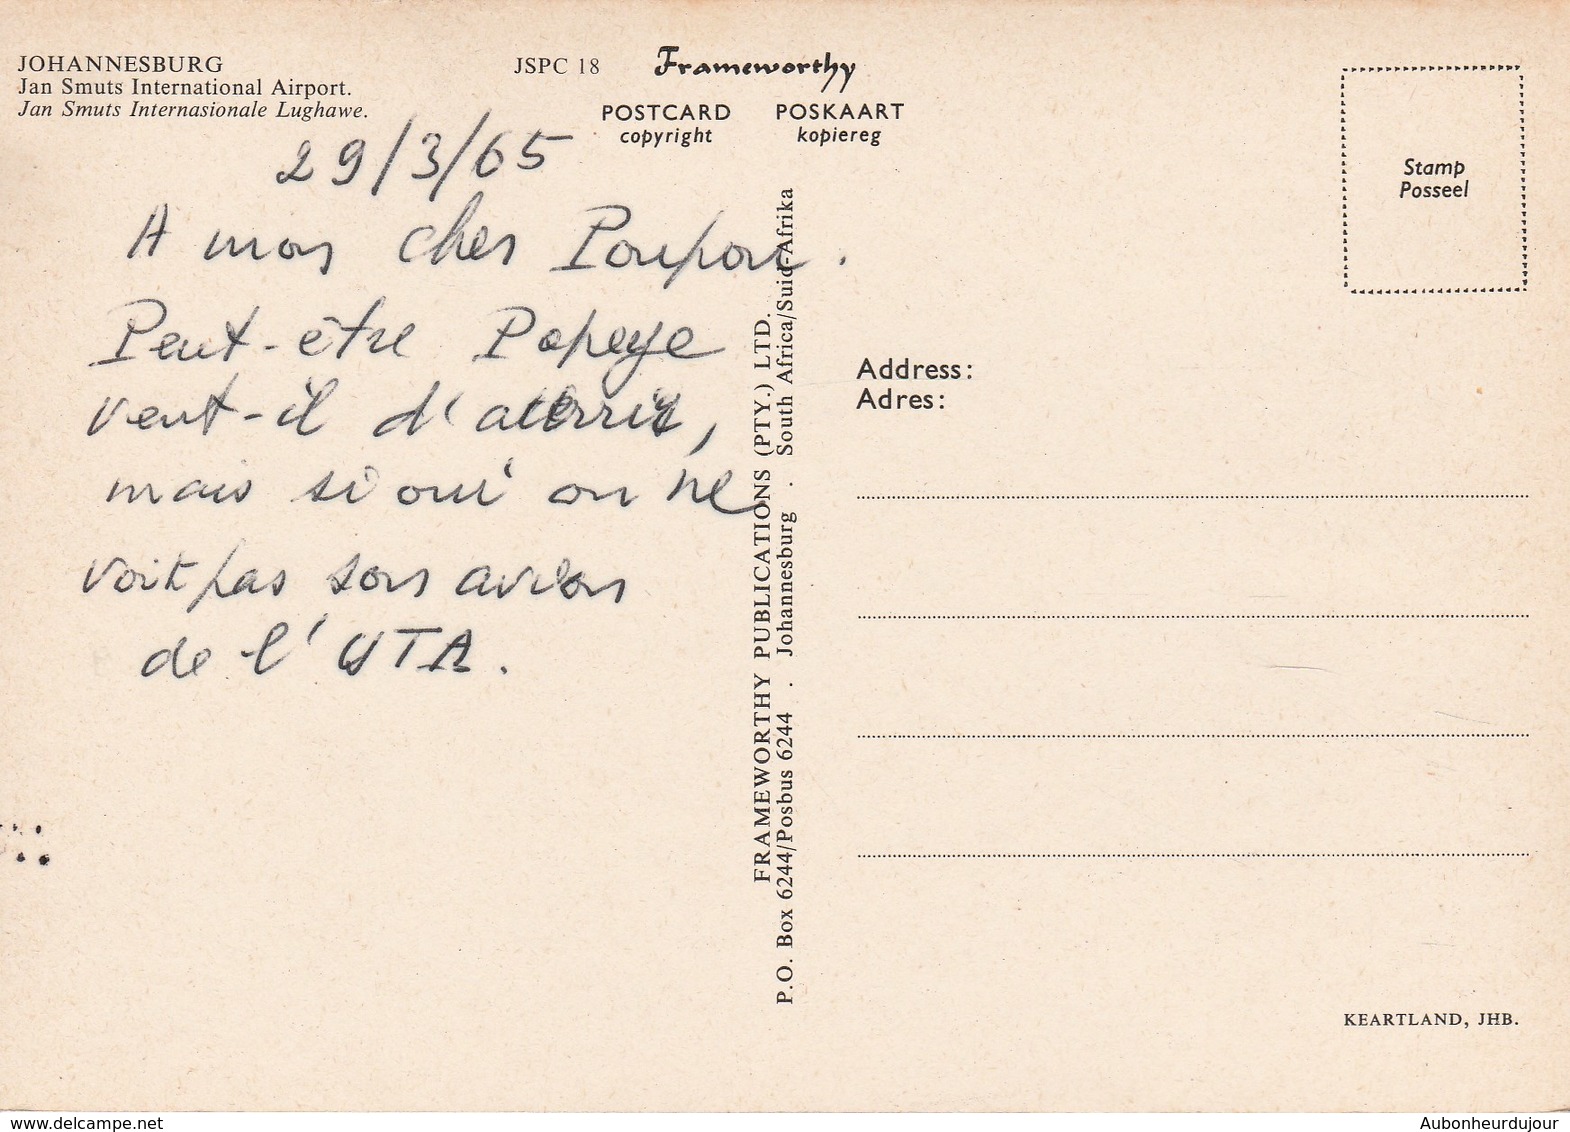 JOHANNESBURG
Jan Smuts International Airport.
Jan Smuts Internasionale Lughawe.
JSPC 18
Frameworthy
POSTCARD POSKAART
copyright kopiereg
Stamp
Posseel
29/3/65
A mon cher Poupou.
Peut-être Popeye
vent-il d'atterrir,
mais si oui on ne
voit pas son avion
de l'UTA.
FRAMEWORTHY PUBLICATIONS (PTY.) LTD.
P.O. Box 6244/Posbus 6244 . Johannesburg . South Africa/Suid-Afrika
Address:
Adres:
KEARTLAND, JHB.
www.delcampe.net
Aubonheurdujour